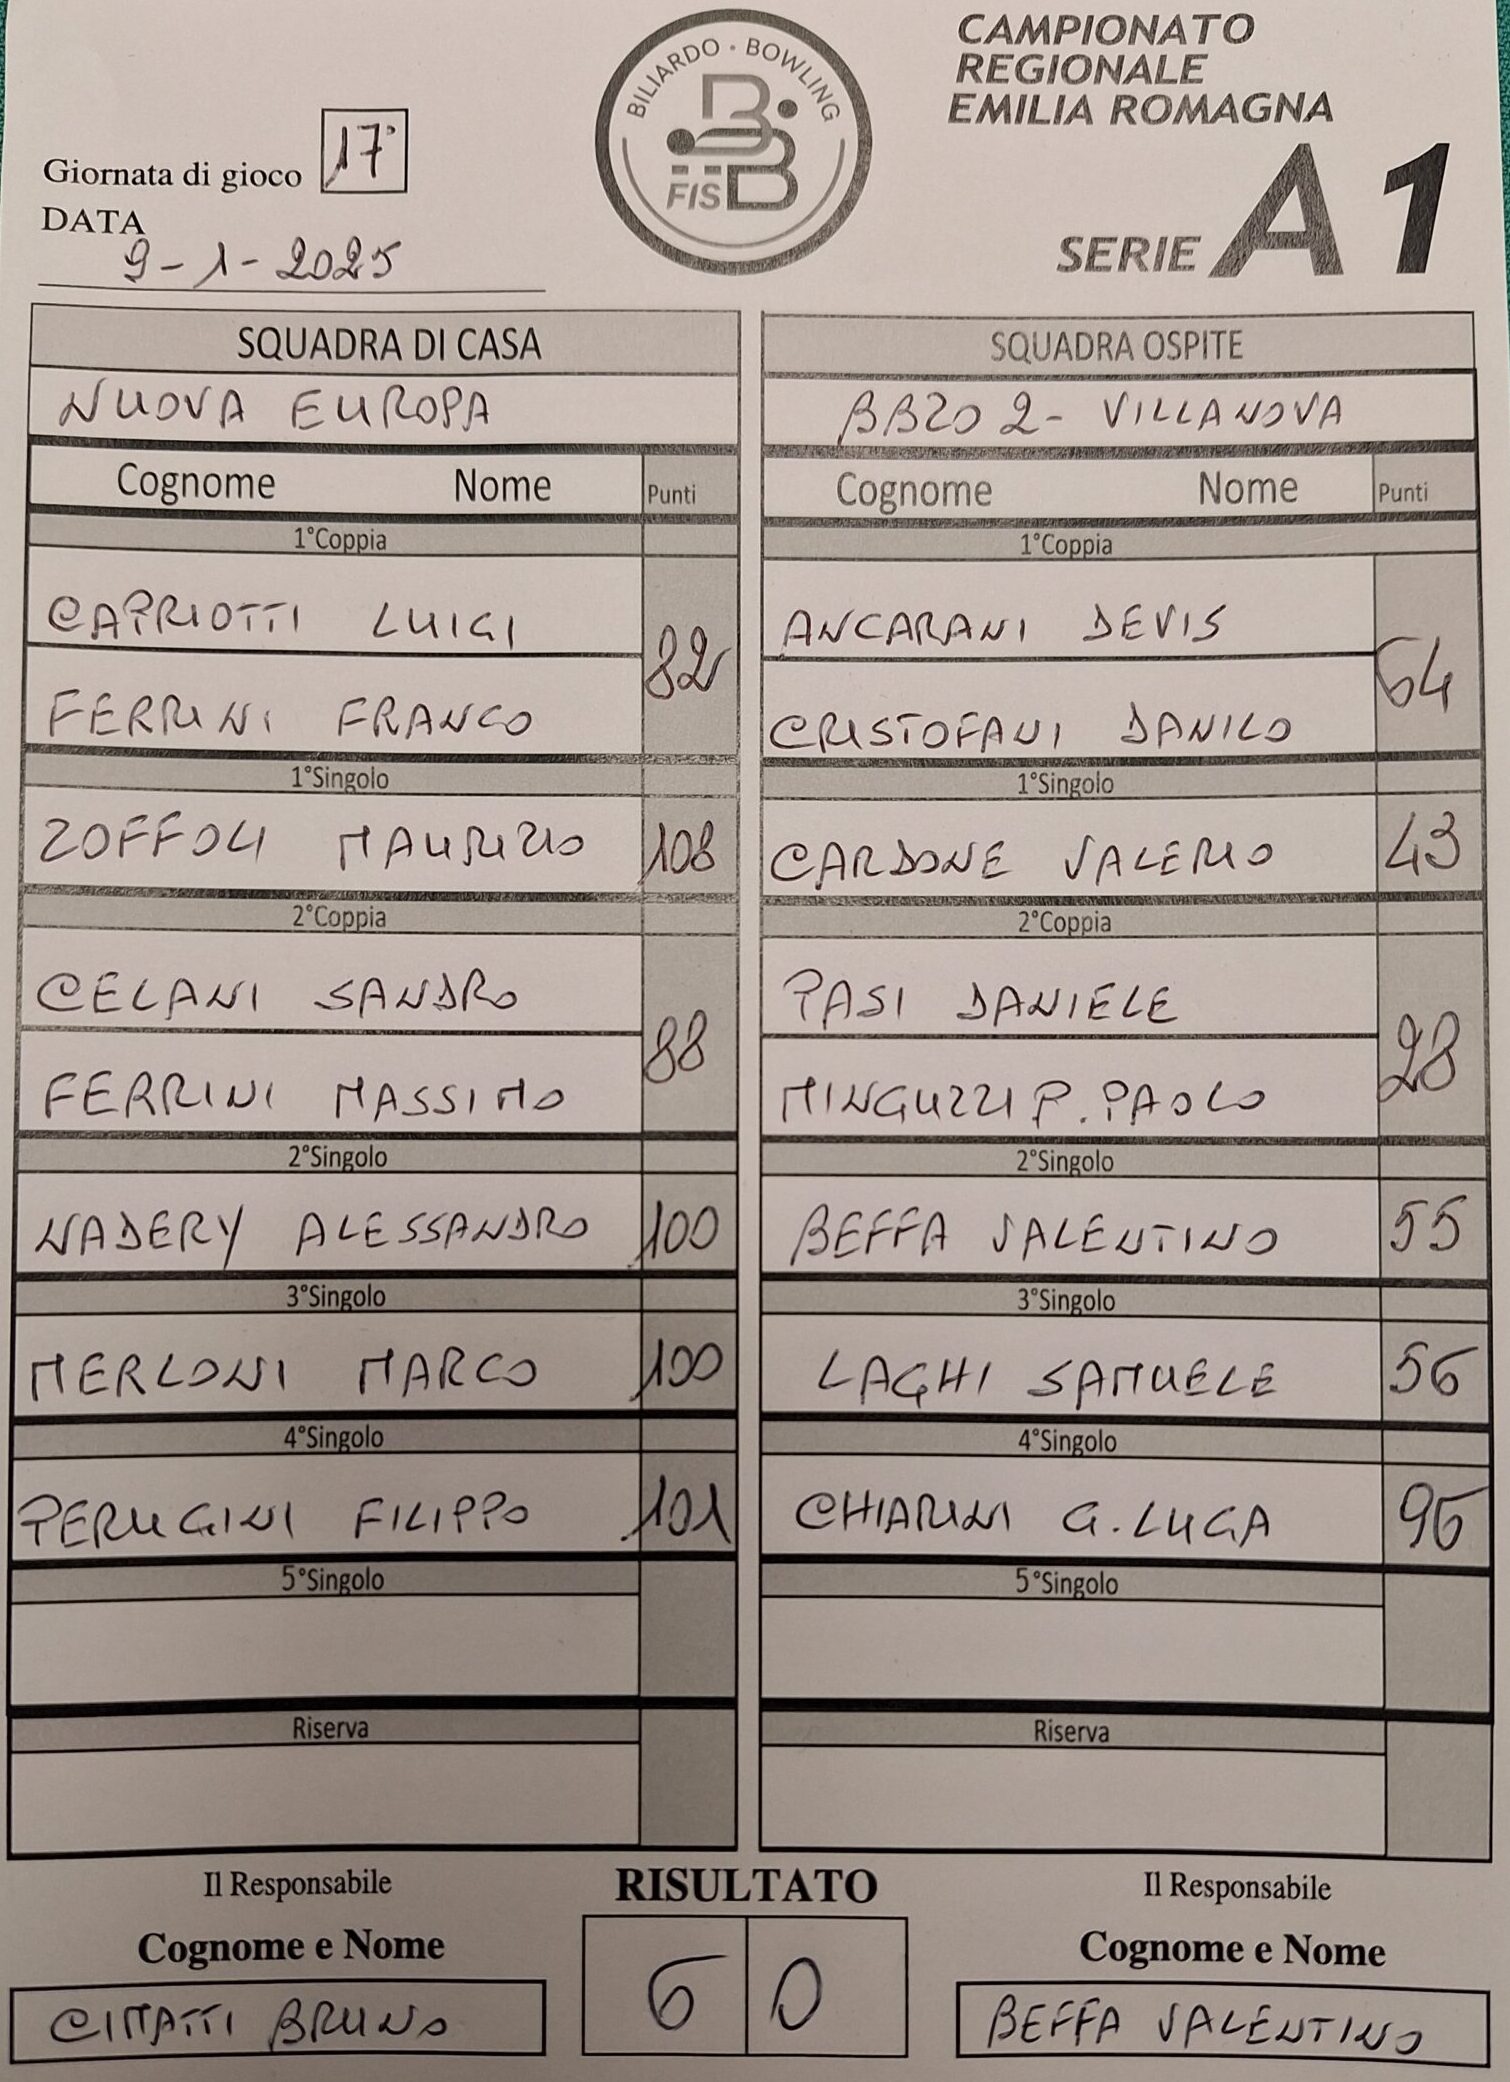 BILIARDO · BOWLING
FISBB
CAMPIONATO
REGIONALE
EMILIA ROMAGNA
SERIE A1
Giornata di gioco 17°
DATA
9-1-2025
SQUADRA DI CASA
NUOVA EUROPA
Cognome Nome Punti
1°Coppia
CAPRIOTTI LUIGI
82
FERRINI FRANCO
1°Singolo
ZOFFOLI MAURIZIO 108
2°Coppia
CELANI SANDRO
88
FERRINI MASSIMO
2°Singolo
NADERY ALESSANDRO 100
3°Singolo
MERLONI MARCO 100
4°Singolo
PERUGINI FILIPPO 101
5°Singolo
Riserva
SQUADRA OSPITE
BBZO 2- VILLANOVA
Cognome Nome Punti
1°Coppia
ANCARANI DEVIS
64
CRISTOFANI DANILO
1°Singolo
CARDONE VALERIO 43
2°Coppia
PASI DANIELE
28
MINGUZZI P. PAOLO
2°Singolo
BEFFA VALENTINO 55
3°Singolo
LAGHI SAMUELE 56
4°Singolo
CHIARINI G. LUCA 96
5°Singolo
Riserva
Il Responsabile
Cognome e Nome
CIMATTI BRUNO
RISULTATO
6 0
Il Responsabile
Cognome e Nome
BEFFA VALENTINO